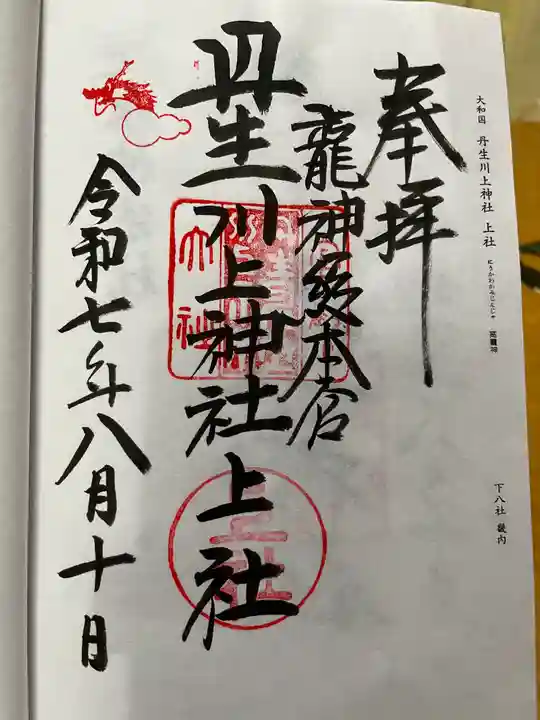 大和国 丹生川上神社 上社
にうかわかみじんじゃ 高龗神
下八社 畿内
奉拝
龍神総本宮
丹生川上神社上社
令和七年八月十日